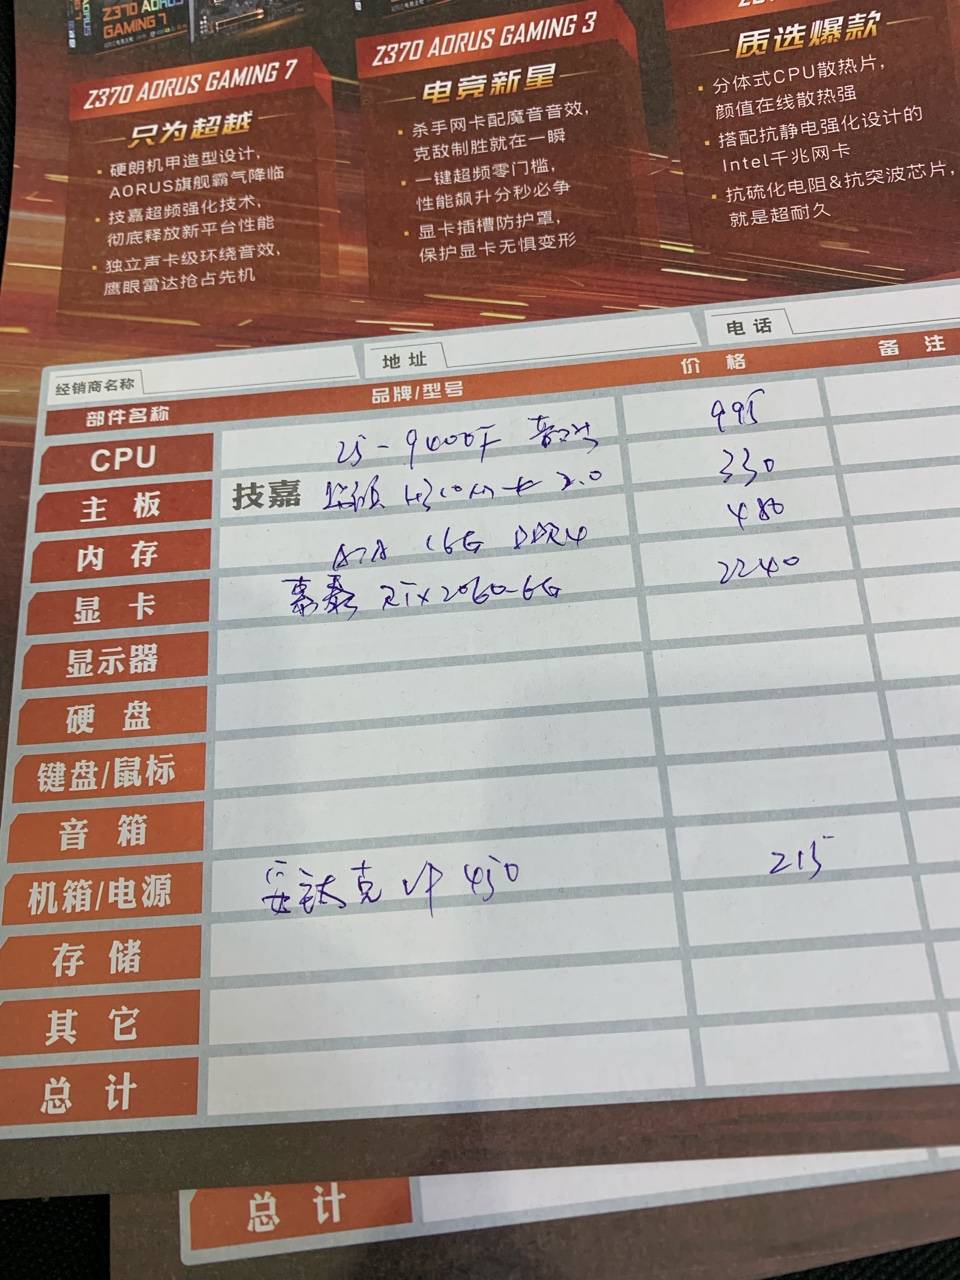 Z370 AORUS
GAMING 7
Z370 AORUS GAMING 7
只为超越
硬朗机甲造型设计,
AORUS旗舰霸气降临
技嘉超频强化技术,
彻底释放新平台性能
独立声卡级环绕音效,
鹰眼雷达抢占先机
Z370 AORUS GAMING 3
电竞新星
杀手网卡配魔音音效,
克敌制胜就在一瞬
一键超频零门槛,
性能飙升分秒必争
显卡插槽防护罩,
保护显卡无惧变形
质选爆款
分体式CPU散热片,
颜值在线散热强
搭配抗静电强化设计的
Intel千兆网卡
抗硫化电阻&抗突波芯片,
就是超耐久
经销商名称 地址 电话
部件名称 品牌/型号 价格 备注
CPU i5-9400F 995
主板 技嘉 H310M 2.0 330
内存 16G DDR4 480
显卡 RTX2060-6G 2240
显示器
硬盘
键盘/鼠标
音箱
机箱/电源 安钛克 VP 450 215
存储
其它
总计
总计